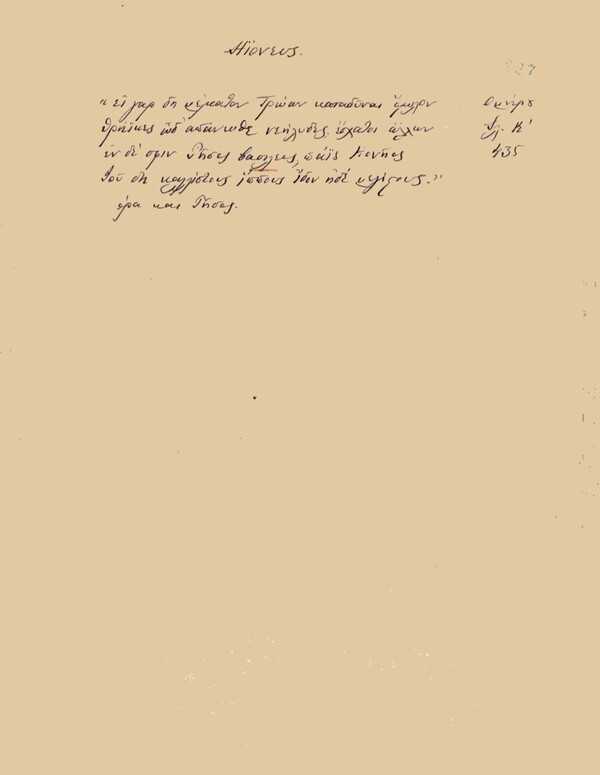 Ηιονευς.
227
"εἰ γαρ δη μέματον Τρώων καταδῦναι ὅμιλον Ομήρου
Θρηϊκες οἵδ' απάνευθε νεήλυδες, ἔσχατοι άλλων Ιλ. Κ'
ἐν δέ σφιν Ῥῆσος βασιλευς, πάϊς Ηιονῆος 435
Τοῦ δη καλλίστους ἵππους ἴδον ηδέ μεγίστους."
όρα και Ρῆσος.